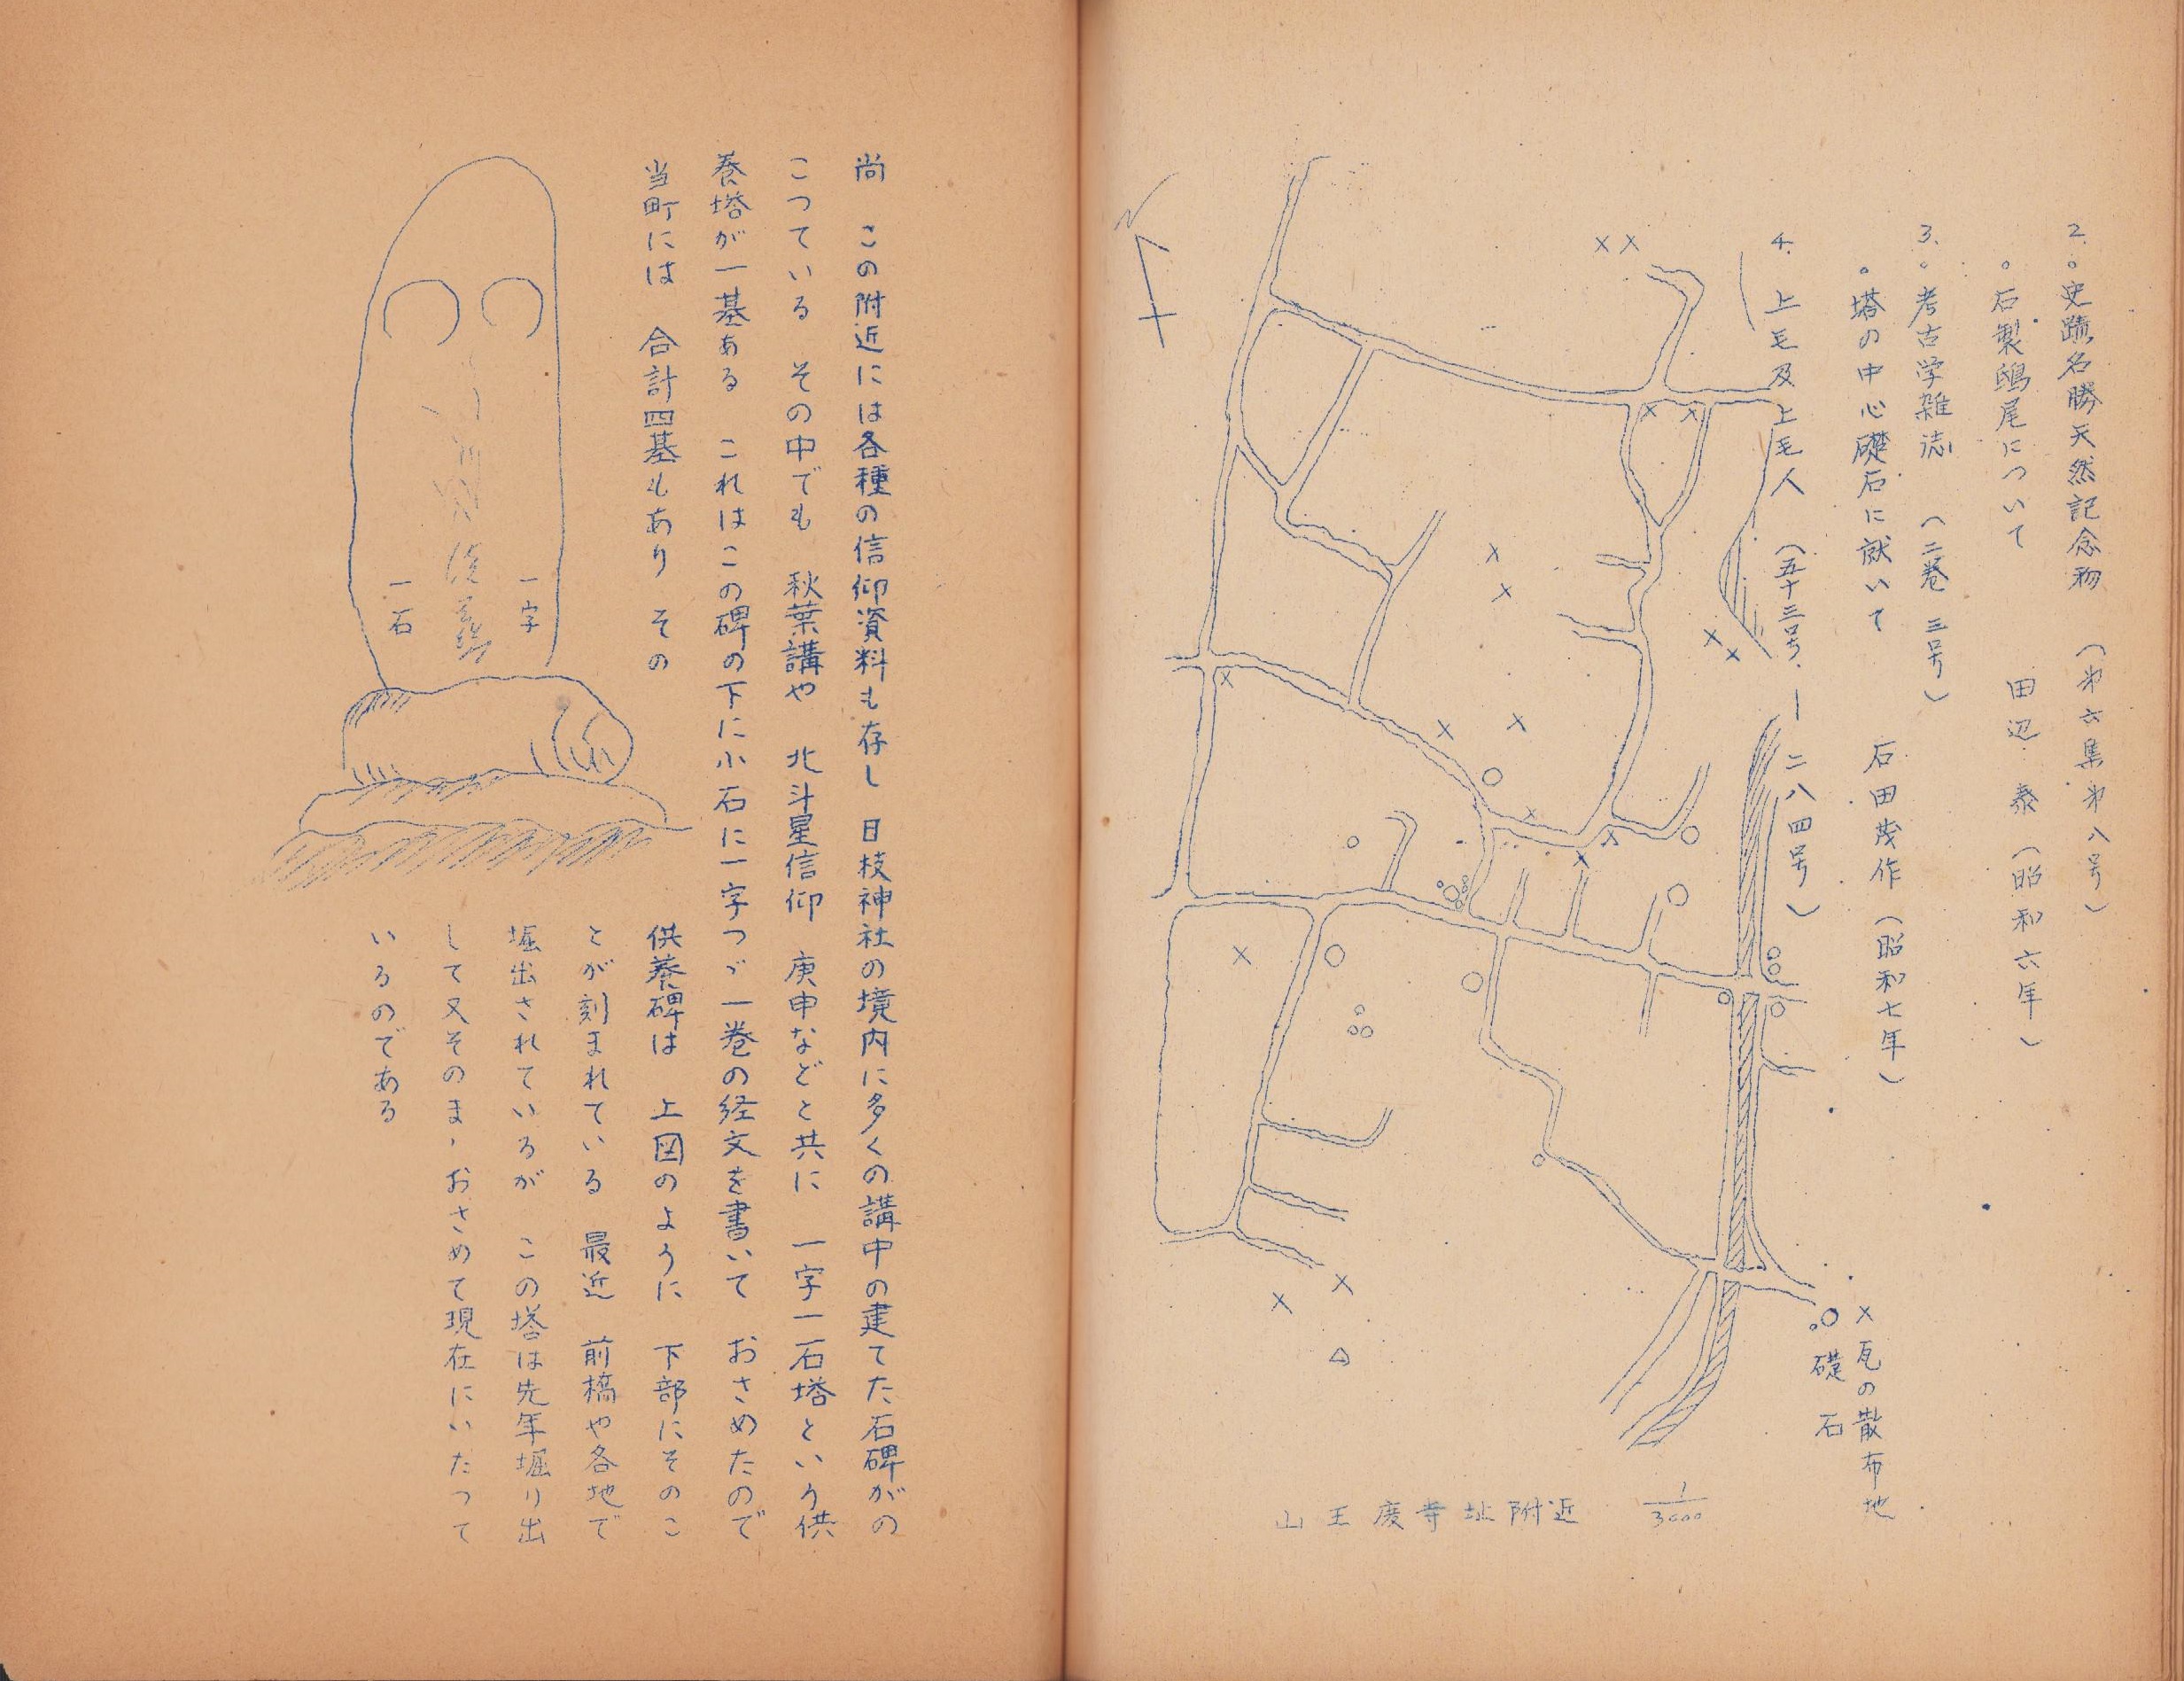 2.○史蹟名勝天然記念物 (第六集第八号)
○石製鴟尾について 田辺 泰 (昭和六年)
3.○考古学雑誌 (二巻 三号)
○塔の中心礎石に就いて 石田茂作 (昭和七年)
4. 上毛及上毛人 (五十三号.―二八四号)
N
×瓦の散布地
○礎石
山王廃寺址附近 1/3000
尚 この附近には各種の信仰資料も存し 日枝神社の境内に多くの講中の建てた石碑がの
こつている その中でも 秋葉講や 北斗星信仰 庚申などと共に 一字一石塔という供
養塔が一基ある これはこの碑の下に小石に一字つゞ一巻の経文を書いて おさめたので
当町には 合計四基もあり その
供養碑は 上図のように 下部にそのこ
とが刻まれている 最近 前橋や各地で
堀出されているが この塔は先年堀り出
して又そのまゝおさめて現在にいたつて
いるのである
一字
一石